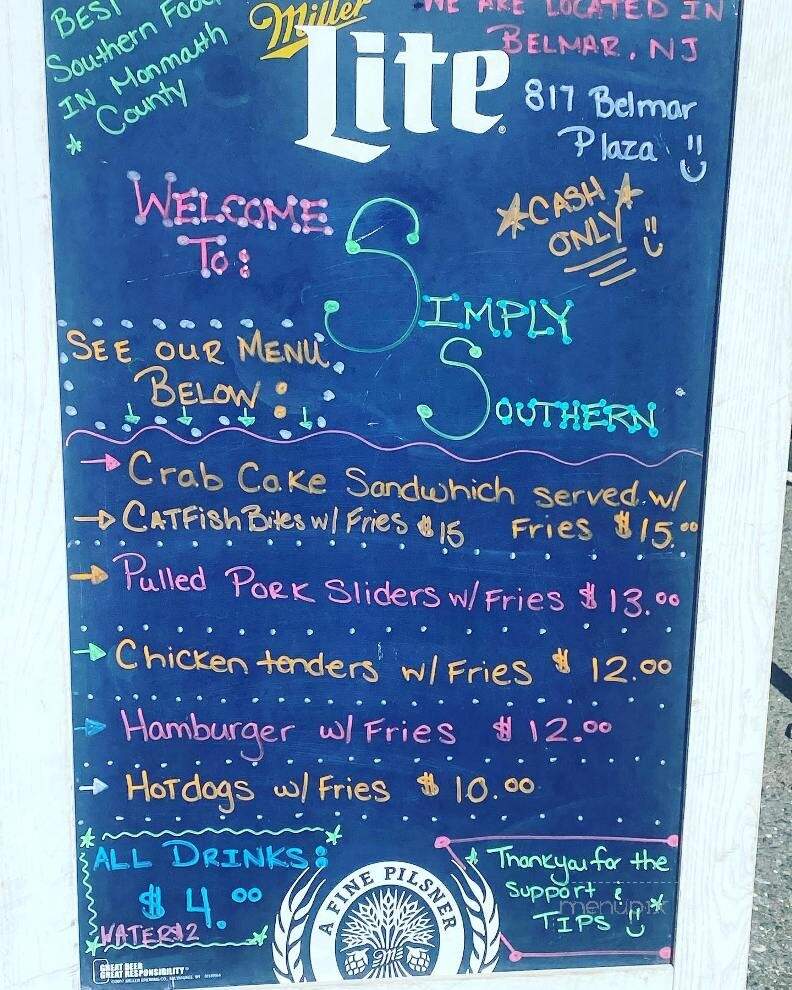 BEST
Southern Food
IN Monmouth
County
Miller
Lite
WE ARE LOCATED IN
BELMAR, NJ
817 Belmar
Plaza
WELCOME
To:
CASH
ONLY
SIMPLY
SOUTHERN
SEE OUR MENU
BELOW:
Crab Cake Sandwhich served w/
Fries $15.00
CATFish Bites w/ Fries $15
Pulled PORK Sliders w/ Fries $13.00
Chicken tenders w/ Fries $12.00
Hamburger w/ Fries $12.00
HoTdogs w/ Fries $10.00
ALL DRINKS:
$4.00
WATER $2
A FINE PILSNER
Thankyou for the
Support &
TIPS
menupix
GREAT BEER
GREAT RESPONSIBILITY